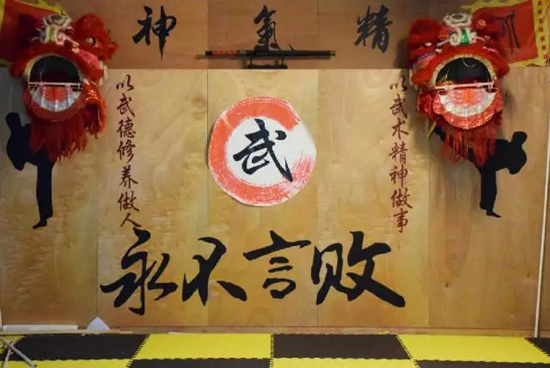 精氣神
以武术精神做事
以武德修养做人
武
永不言败